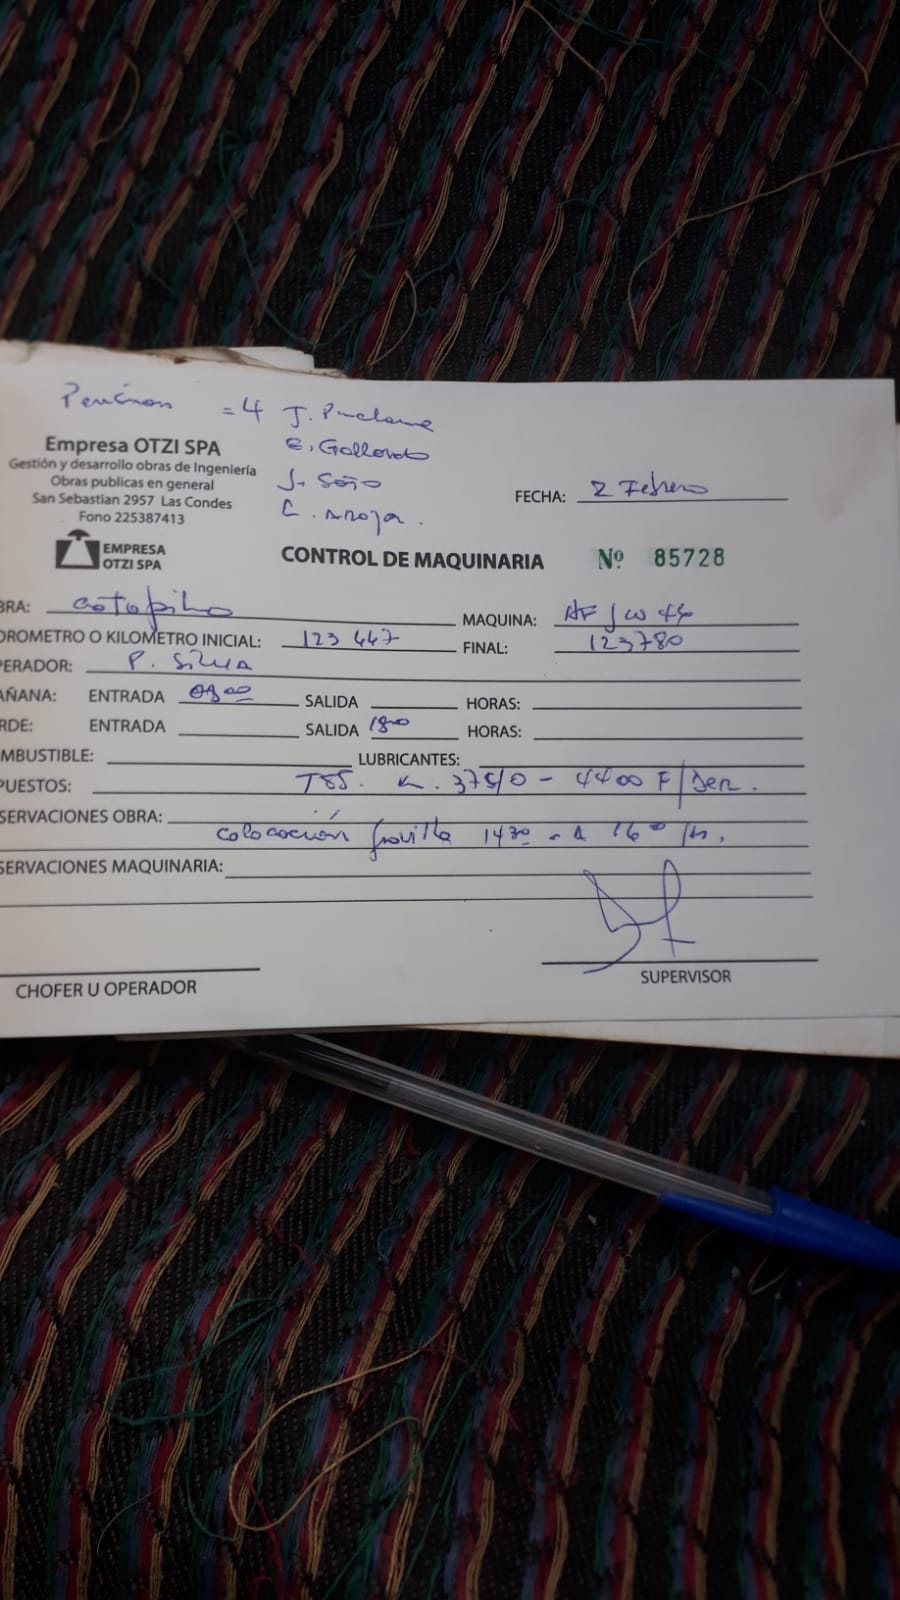 = 4
E. Gallardo
J. Soto
Empresa OTZI SPA
Gestión y desarrollo obras de Ingeniería
Obras publicas en general
San Sebastian 2957 Las Condes
Fono 225387413
EMPRESA
OTZI SPA
FECHA: 2 Febrero
CONTROL DE MAQUINARIA Nº 85728
BRA: Cotapilco MAQUINA:
OROMETRO O KILOMETRO INICIAL: 123447 FINAL: 123780
PERADOR: P. Silva
AÑANA: ENTRADA 0800 SALIDA HORAS:
RDE: ENTRADA SALIDA 1800 HORAS:
MBUSTIBLE: LUBRICANTES:
PUESTOS: T85. K. 37510 - 4400 F/Der.
SERVACIONES OBRA:
Colocación Gravilla 1430 - A 1600 Hr.
SERVACIONES MAQUINARIA:
CHOFER U OPERADOR
SUPERVISOR